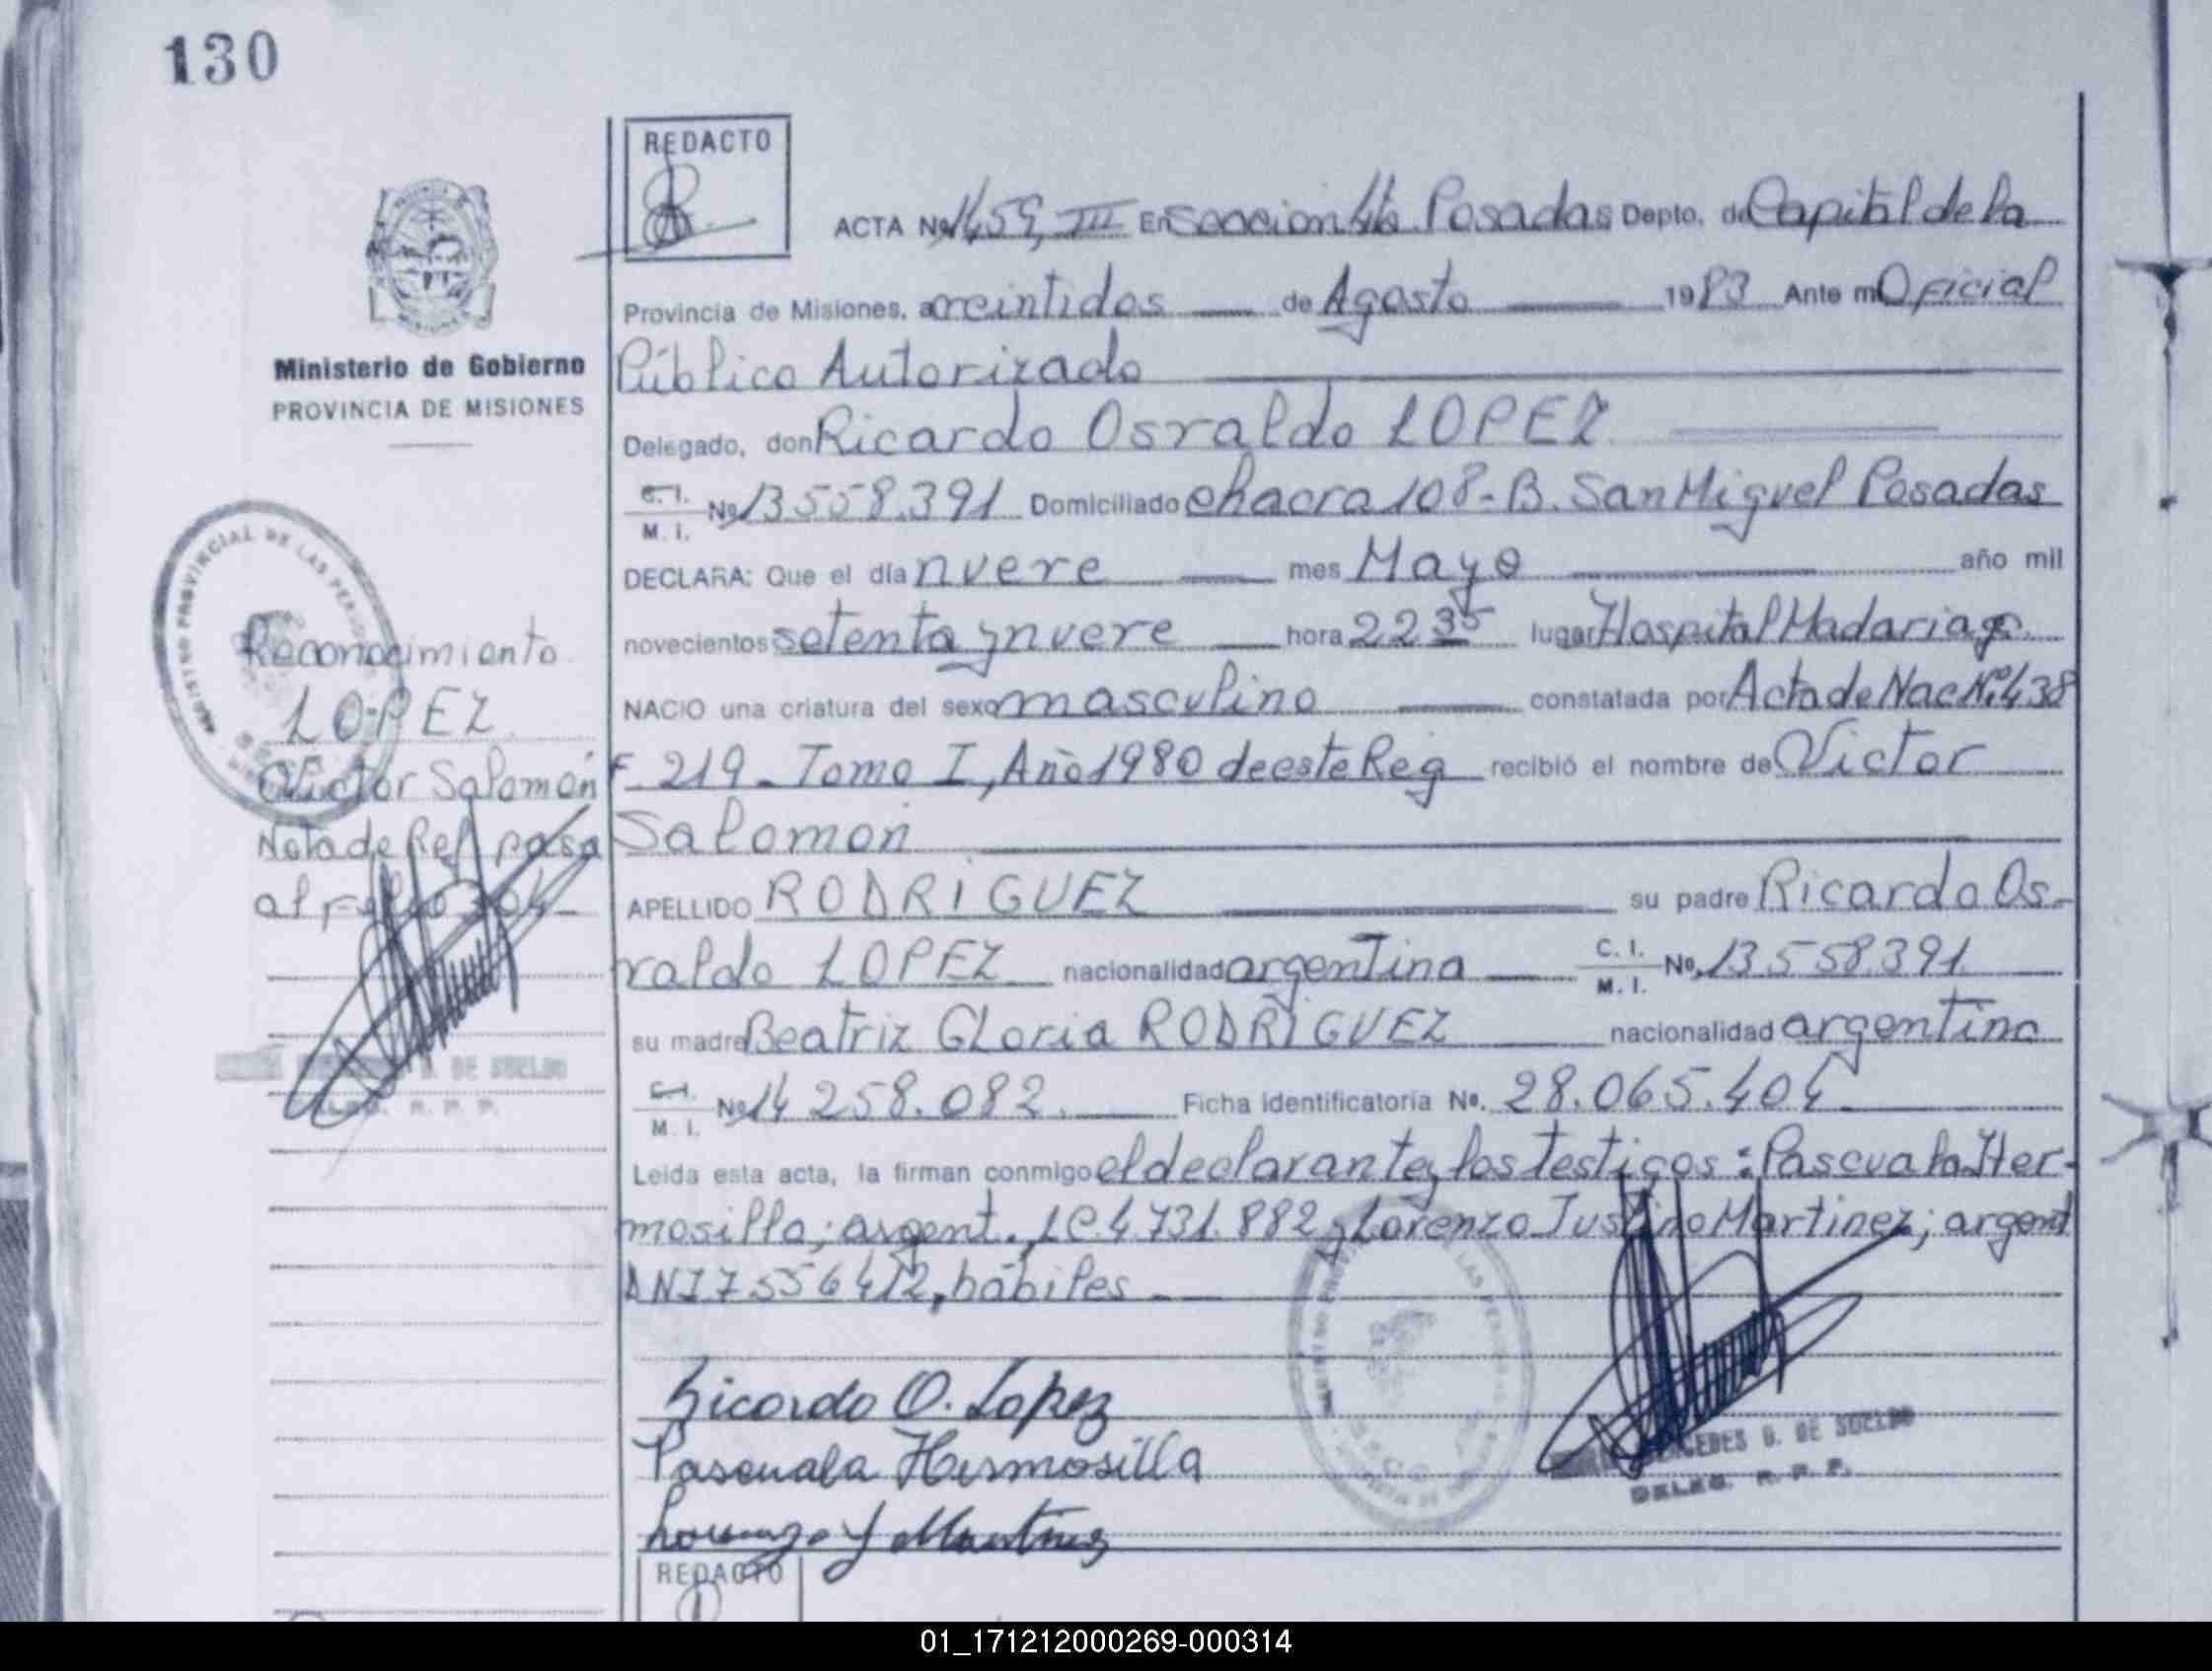 130
REDACTO
ACTA Nº 1459, III En sección 4ta Posadas Depto. de Capital de la
Provincia de Misiones, a veintidos de Agosto 1983 Ante mi Oficial
Ministerio de Gobierno
PROVINCIA DE MISIONES
Público Autorizado
Delegado, don Ricardo Osvaldo LOPEZ
C. I.
M. I.
Nº 13558.391 Domiciliado chacra 108-B. San Miguel Posadas
DECLARA: Que el día nueve mes Mayo año mil
novecientos setenta y nueve hora 22 35 lugar Hospital Madariaga
NACIO una criatura del sexo masculino constatada por Acta de Nac Nº 438
F. 219 - Tomo I, Año 1980 de este Reg recibió el nombre de Victor
Salomon
APELLIDO RODRIGUEZ su padre Ricardo Os-
valdo LOPEZ nacionalidad argentina C. I. M. I. No. 13.558.391
su madre Beatriz Gloria RODRIGUEZ nacionalidad argentina
C. I.
M. I.
Nº 14 258.082. Ficha identificatoria No. 28.065.404
Leída esta acta, la firman conmigo el declarante y los testigos: Pascuala Her-
mosilla; argent. LC.4 731.882 y Lorenzo Justino Martinez; argent
DNI 7556412, hábiles
Reconocimiento
LOPEZ
Victor Salomón
Nota de Ref. pasa
al folio
REGISTRO PROVINCIAL DE LAS PERSONAS
DE SUELDO
R. P. P.
Ricardo O. Lopez
Pascuala Hermosilla
Lorenzo J Martinez
MERCEDES B. DE SUELDO
DELEG. R. P. P.
REDACTO
01_171212000269-000314